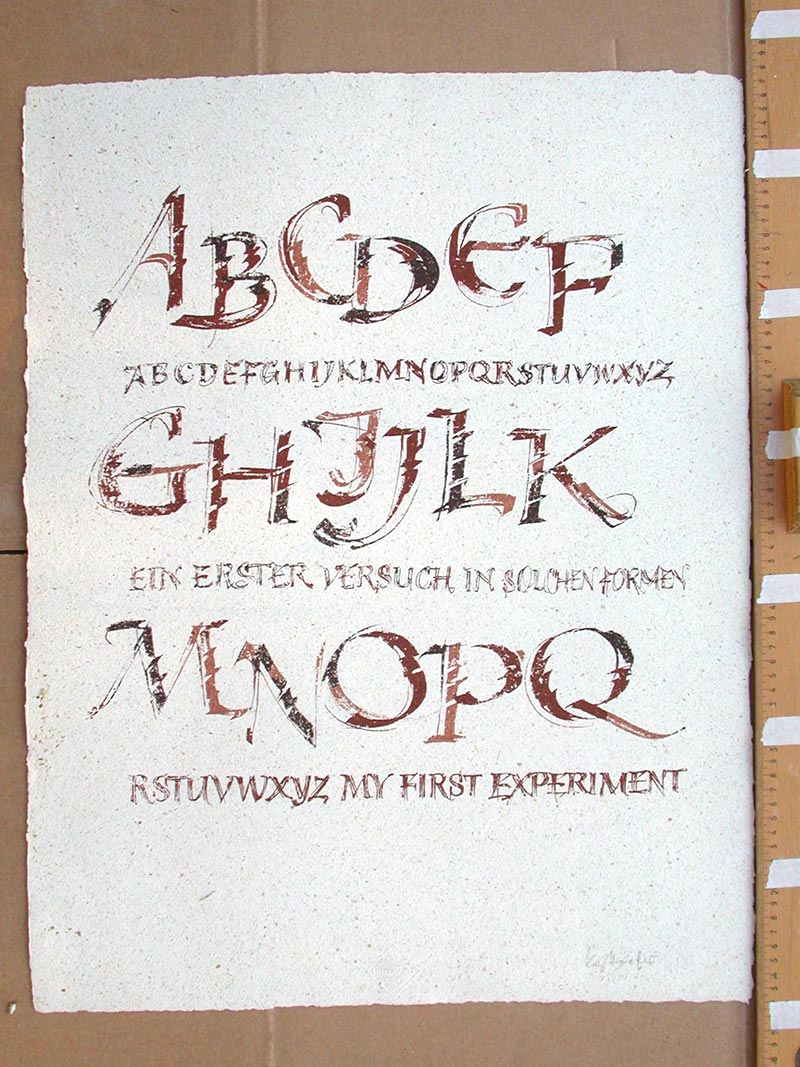 ABCDEF
ABCDEFGHIJKLMNOPQRSTUVWXYZ
GHIJLK
EIN ERSTER VERSUCH IN SOLCHEN FORMEN
MNOPQ
RSTUVWXYZ MY FIRST EXPERIMENT